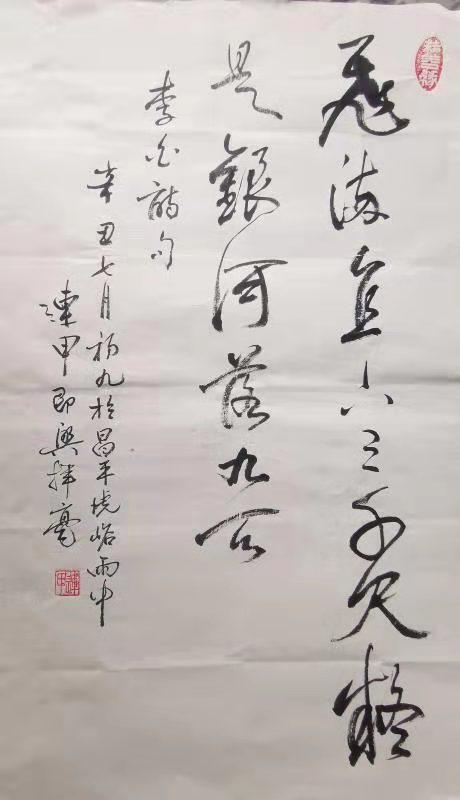 飛流直下三千尺疑
是銀河落九天
李白詩句
辛丑七月初九於昌平虎峪雨中
漣甲即興揮毫